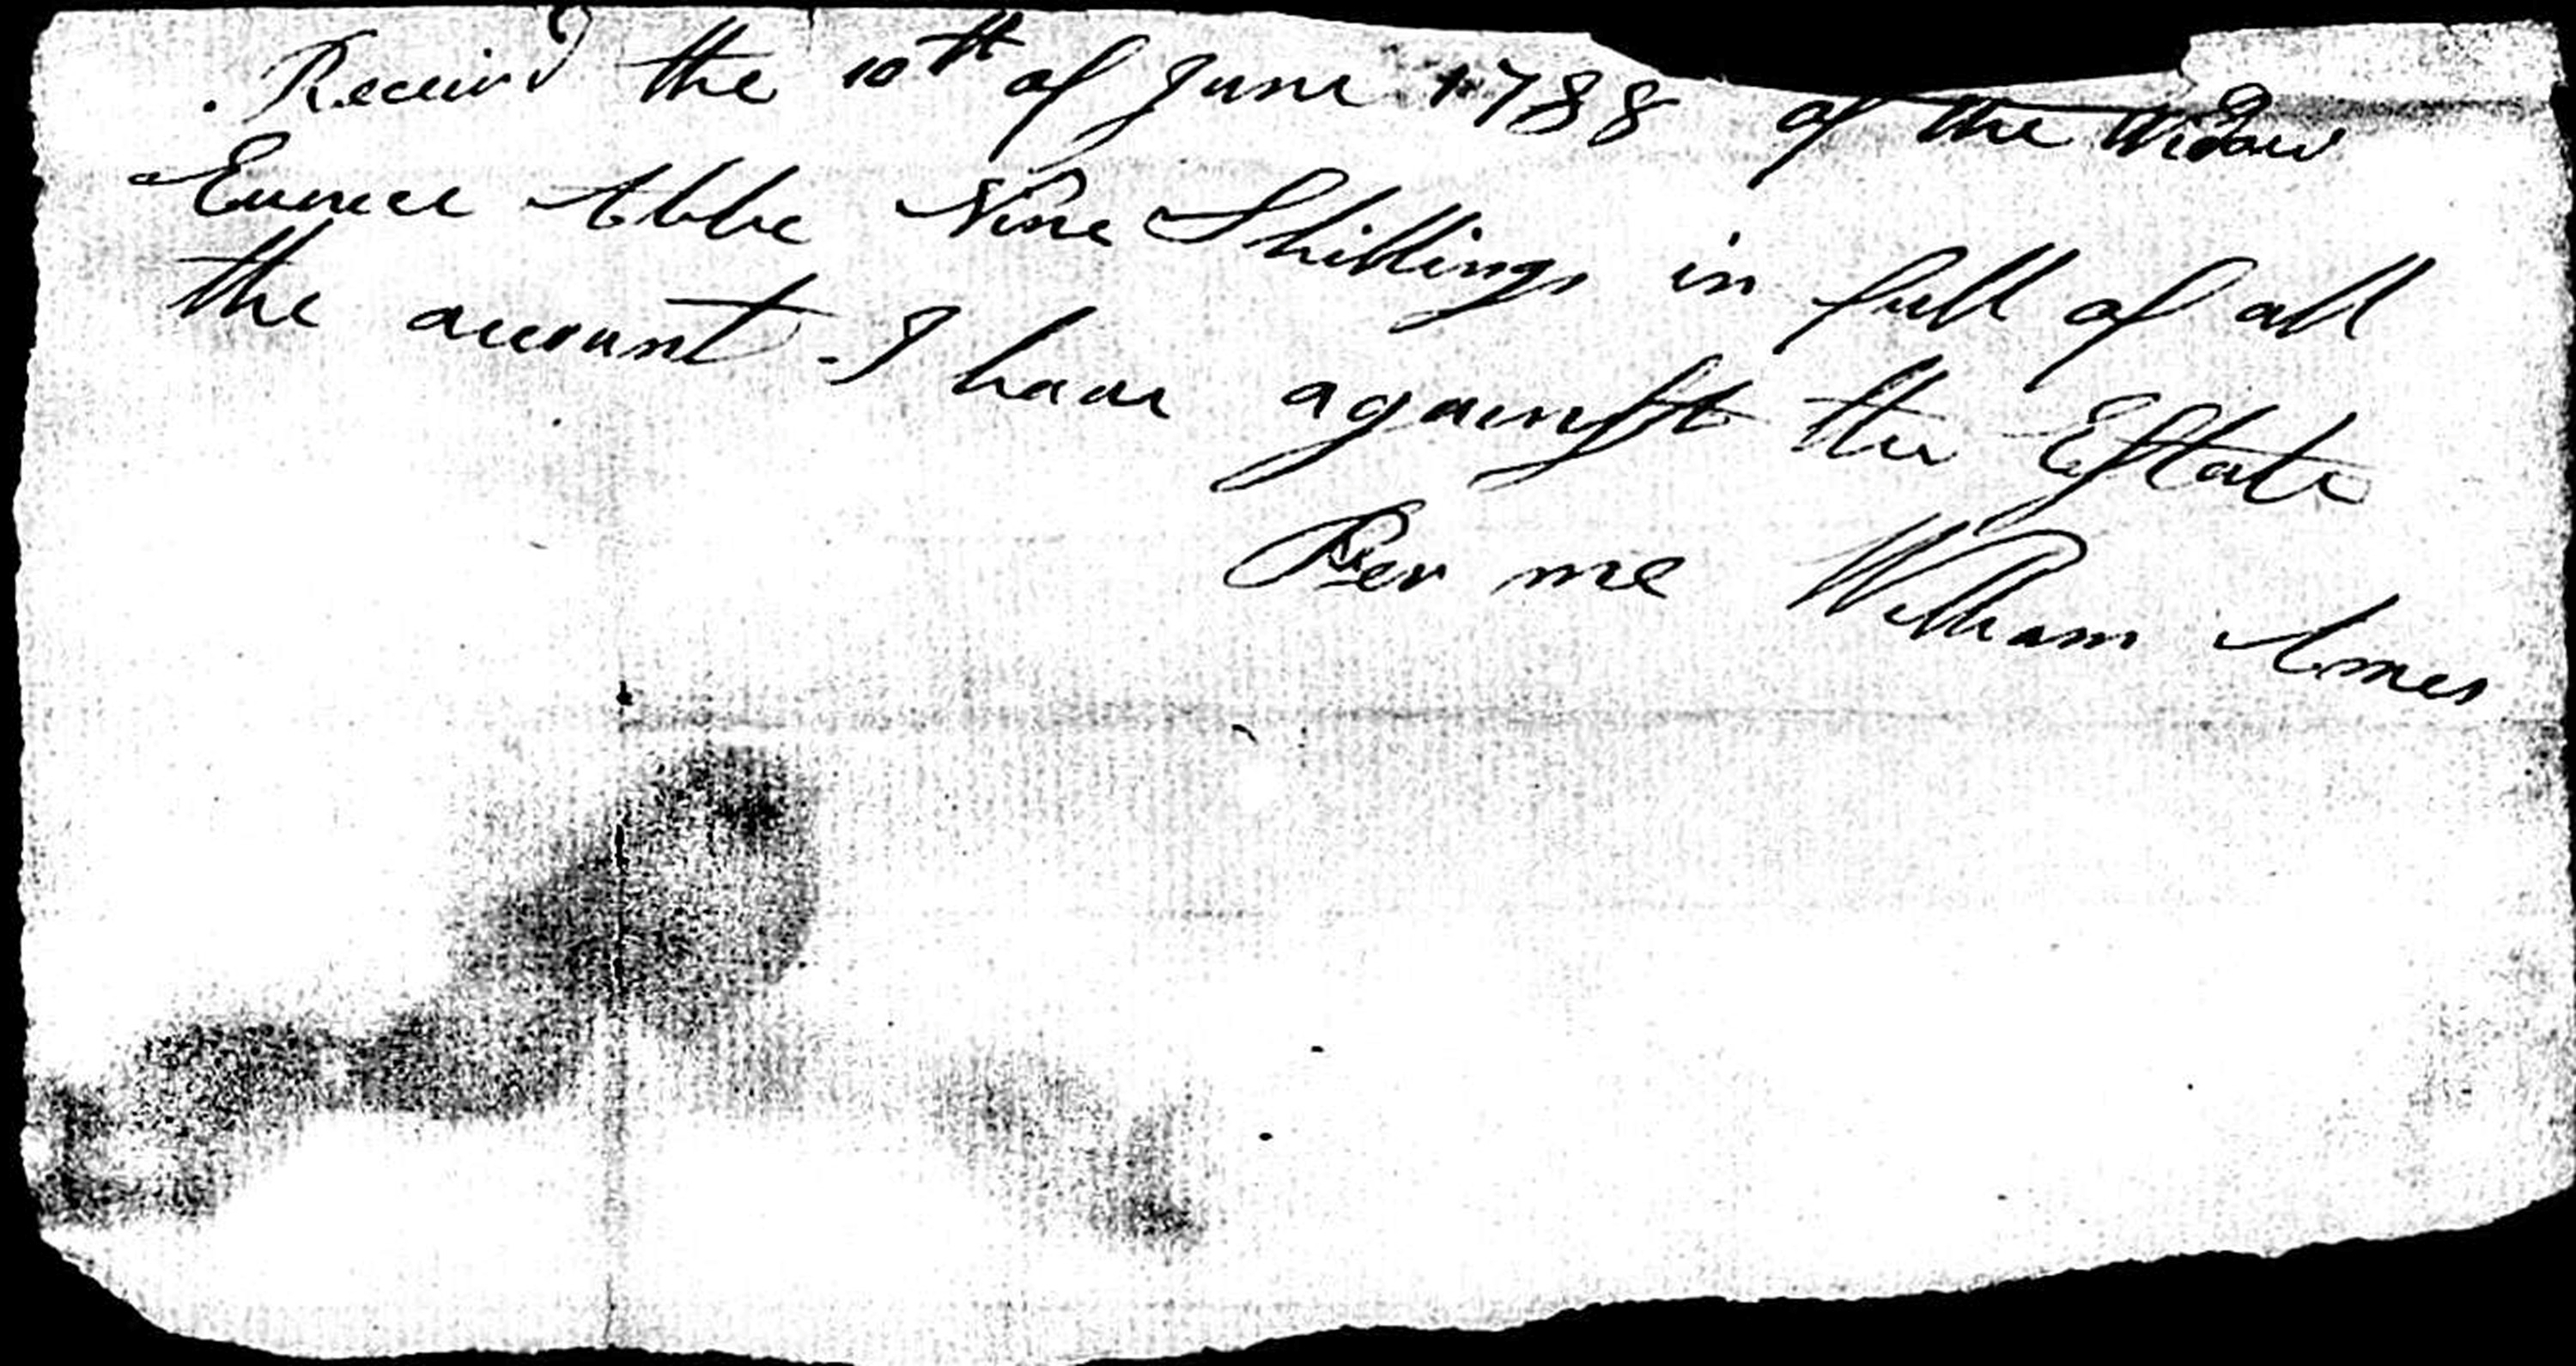 Receivd the 10th of June 1788 of the Widow
Eunice Abbe Nine Shillings in full of all
the account I have against the Estate
Per me William Ames